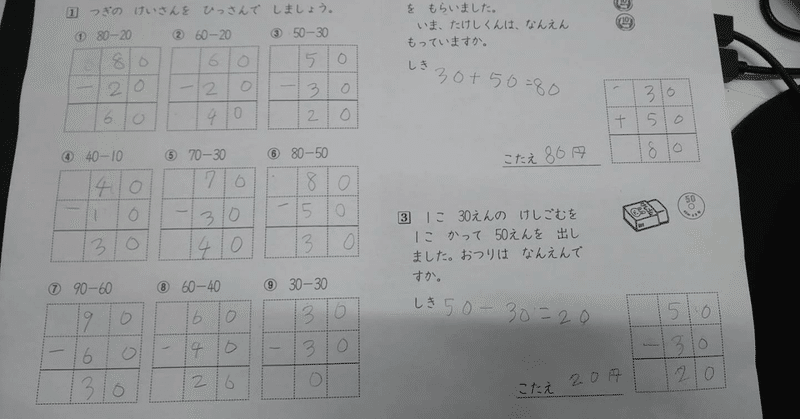 1 つぎの けいさんを ひっさんで しましょう。
① 80-20
8 0
- 2 0
6 0
② 60-20
6 0
- 2 0
4 0
③ 50-30
5 0
- 3 0
2 0
④ 40-10
4 0
- 1 0
3 0
⑤ 70-30
7 0
- 3 0
4 0
⑥ 80-50
8 0
- 5 0
3 0
⑦ 90-60
9 0
- 6 0
3 0
⑧ 60-40
6 0
- 4 0
2 0
⑨ 30-30
3 0
- 3 0
0
を もらいました。
いま、たけしくんは、なんえん
もっていますか。
しき 30+50=80
3 0
+ 5 0
8 0
こたえ 80円
3 1こ 30えんの けしごむを
1こ かって 50えんを 出し
ました。おつりは なんえんで
すか。
50
しき 50-30=20
5 0
- 3 0
2 0
こたえ 20円